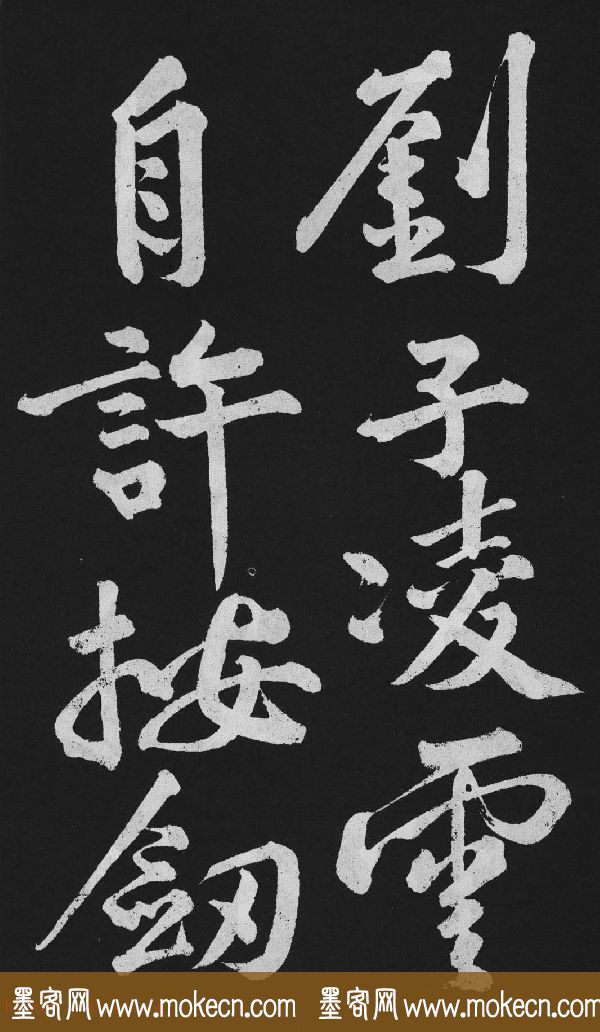 劉子凌雲
自許按劒
墨客网 www.mokecn.com 墨客网 www.mokecn.com